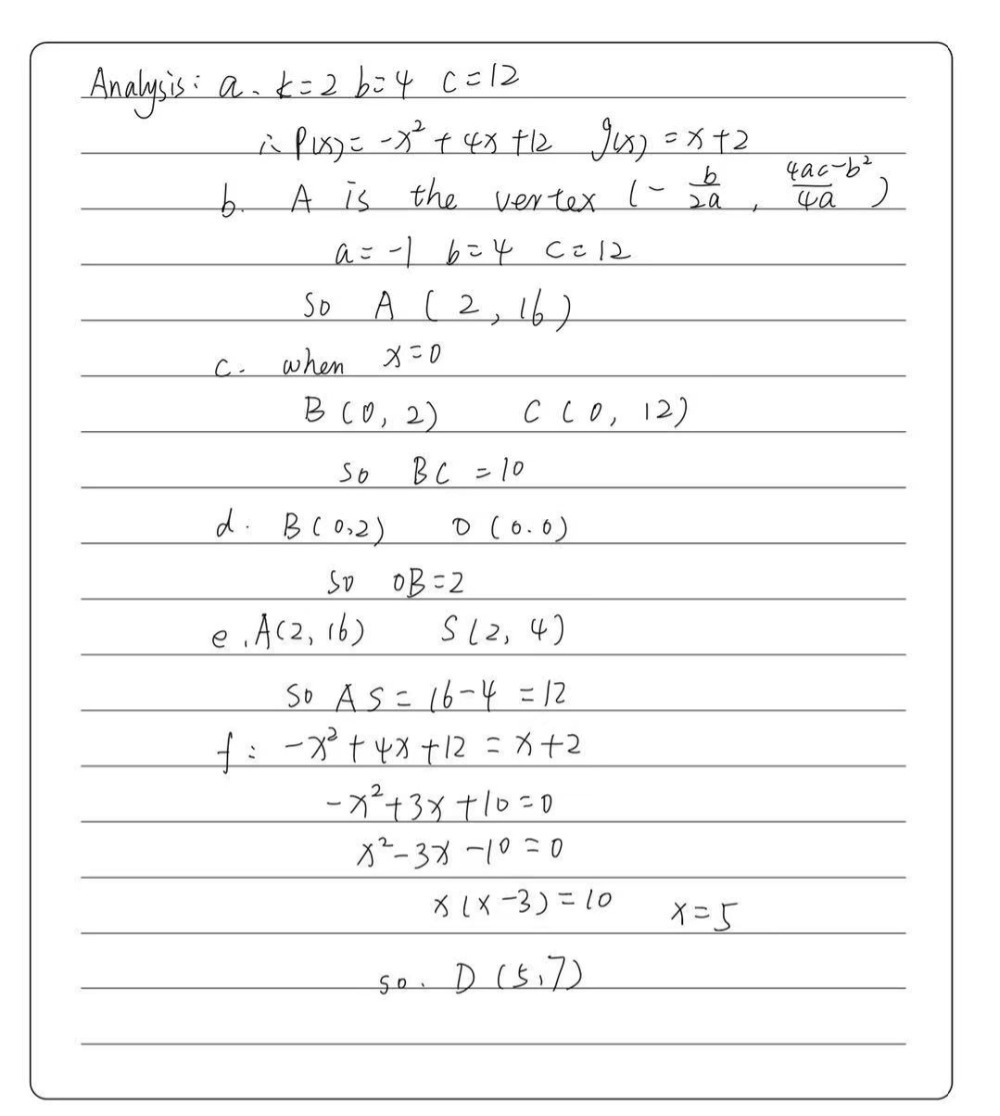 Analysis: a. k=2 b=4 c=12
∴ P(x)= -x² + 4x +12 g(x) = x+2
b. A is the vertex (- b/2a , 4ac-b²/4a )
a= -1 b=4 c=12
so A ( 2 , 16 )
c. when x=0
B (0, 2) C (0, 12)
so BC =10
d. B(0,2) O (0.0)
so OB=2
e. A(2, 16) S(2, 4)
so AS= 16-4 =12
f: -x²+4x+12 = x+2
-x²+3x+10=0
x²-3x-10=0
x(x-3)=10 x=5
so. D (5,7)